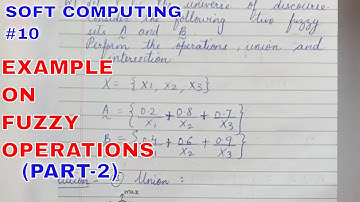 SOFT COMPUTING
#10
EXAMPLE
ON
FUZZY
OPERATIONS
(PART-2)
the universe of discourse
Consider the following two fuzzy
sets A and B
Perform the operations, union and
intersection
X = { x1, x2, x3 }
A = { 0.2/x1 + 0.8/x2 + 0.7/x3 }
B = { 0.4/x1 + 0.6/x2 + 0.9/x3 }
① Union :